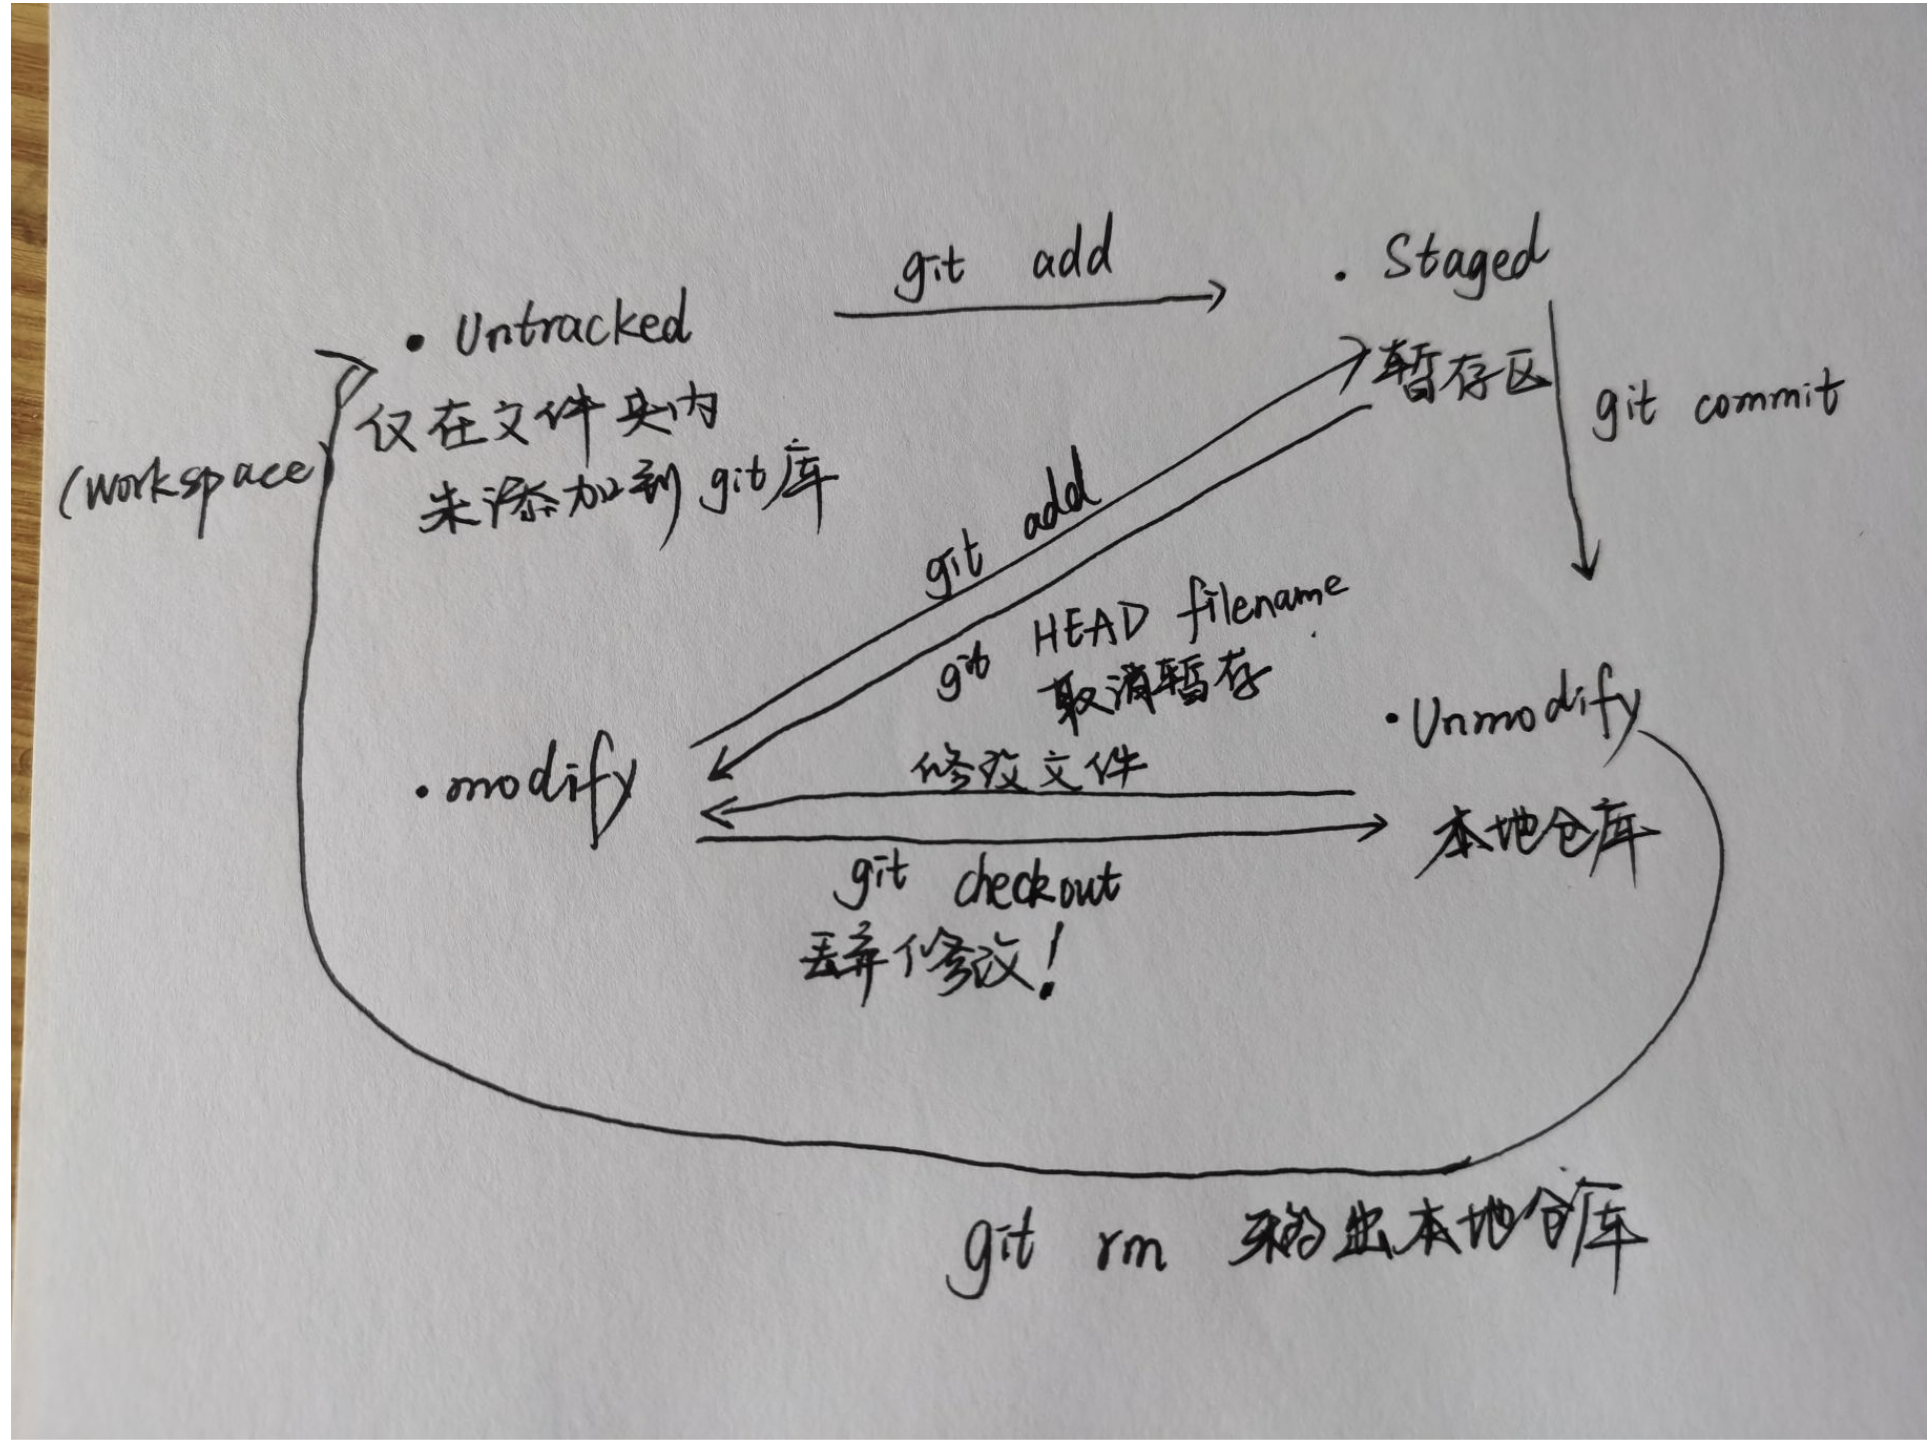 git add
· Staged
· Untracked
暂存区
git commit
仅在文件夹内
(workspace)
未添加到git库
git add
git HEAD filename
取消暂存
· Unmodify
· modify
修改文件
本地仓库
git checkout
丢弃修改!
git rm 移出本地仓库